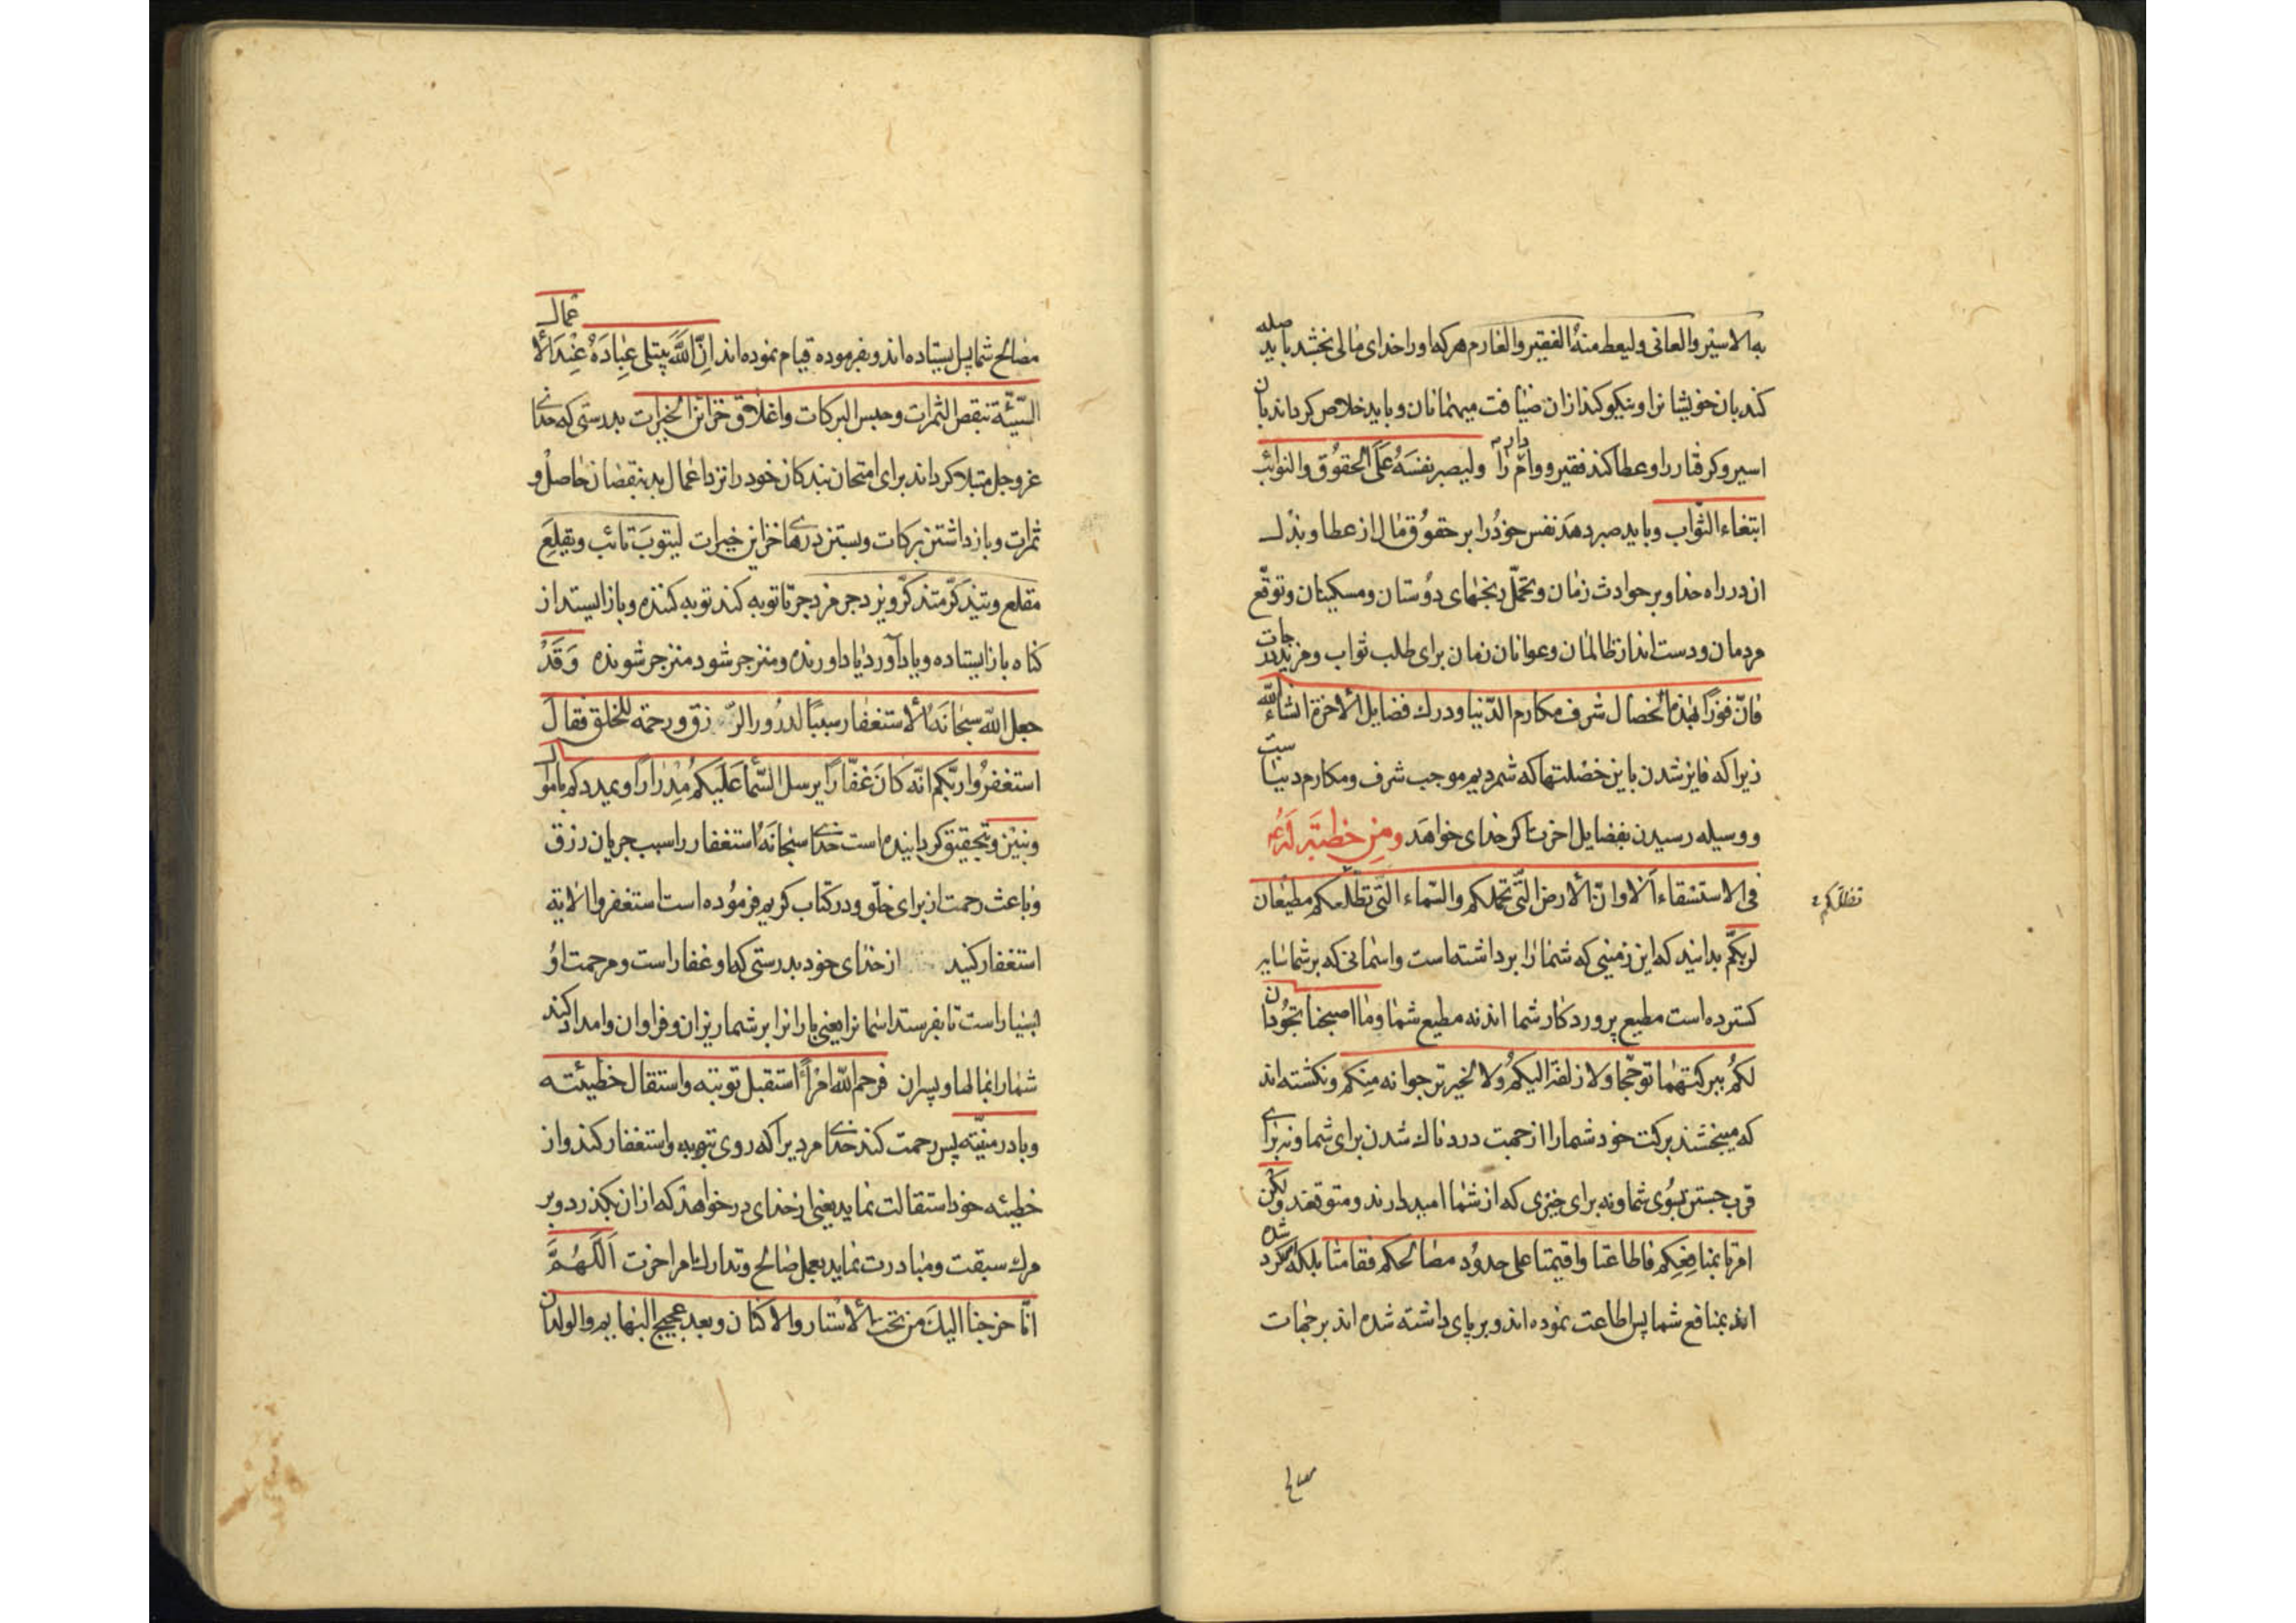 به الاسیر والعانی ولیعط منه الفقیر والغارم هر که او را خدای مالی بخشد باید صله
کند بان خویشانرا و نیکو کند ازان ضیافت میهمانان و باید خلاص کرداند بان
اسیر و کرفتار را و عطا کند فقیر و وام دار را ولیصبر نفسَهُ عَلَی الحقوُق والنوائب
ابتغاء الثّواب و باید صبر دهد نفس خودُرا بر حقوُق مال از عطا و بذل
ان در راه خدا و بر حوادث زمان و تحمّل رنجهای دوُستان و مسکینان و توقّع
مردمان و دست انداز ظالمان و عوانان زمان برای طلب ثواب و مزید درجات
فانّ فوزًا بهٰذه الخصال شرف مکارم الدّنیا و درك فضایل الاخرة انشاء الله
زیرا که فایز شدن باین خصلتها که شمردیم موجب شرف و مکارم دنیاست
و وسیله رسیدن بفضایل اخرت اکر خدای خواهد ومن خطبته له ع
فی الاستسقاء الا وانّ الارض الّتی تحملکم والسّماء الّتی تظلّکم مطیعان
تظللکم
لربّکم بدانید که این زمینی که شما را برداشته است و اسمانی که بر شما سایه
کسترده است مطیع پروردکار شما اند نه مطیع شما وما اصبحتا تجوُدان
لکمُ ببرکتهما توجّعا ولا زلفة الیکمُ ولا لخیر ترجوانه منکم و نکشته اند
که میبخشند برکت خود شما را از جهت دردناك شدن برای شما و نه برای
قرب جستن بسُوی شما و نه برای خیزی که از شما امید دارند و متوقعند ولکن
امرتا بمنافعکم فاطاعتا واقیمتا علی حدوُد مصالحکم فقامتا بلکه امر کرده شده
اند بمنافع شما پس اطاعت نموده اند و بر پای داشته شده اند بر جهات
مصالح
مصالح شما پس ایستاده اند و بفرموده قیام نموده اند اِنّ اللّهَ یبتلی عِبادَهُ عِنْدَ الأعمال
السّیّئة بنقص الثمرات وحبس البرکات واغلاق خزائن الخیرات بدرستی که خدای
عزوجل مبتلا کرداند برای امتحان بندکان خود را نزد اعمال بد بنقصان حاصل و
ثمرات و باز داشتن برکات و بستن درهای خزاین خیرات لیتوبَ تائب ویقلعَ
مقلع ویتذکّر متذکّر ویزدجر مزدجر تا توبه کند توبه کننده و باز ایستد از
کناه باز ایستاده و یاد آورد یاد اورنده و منزجر شود منزجر شونده وَقَدْ
جعل الله سبحانَهُ الاستغفار سببًا لدروُر الرّزق ورحمة للخلق فقالَ
استغفروُا ربّکم انّه کانَ غفّارًا یرسل السّماء عَلَیکم مِدْرارًا ویمددکم باموال
وبنین و تحقیق کردانیده است خدای سبحانَهُ استغفار را سبب جریان رزق
و باعث رحمت از برای خلق و در کتاب کریم فرموُده است استغفروا الایة
استغفار کنید از خدای خود بدرستی که او غفار است و مرحمت اوُ
بسیار است تا بفرستد اسمانرا یعنی بارانرا بر شما ریزان و فراوان و امداد کند
شما را بمالها و پسران فرحم اللّه امرأً استقبل توبته واستقال خطیئته
وبادر منیّته پس رحمت کند خدای مردیرا که روی بتوبه و استغفار کند و از
خطیئه خود استقالت نماید یعنی از خدای درخواهد که ازان بکذرد و بر
مرك سبقت و مبادرت نماید بعمل صالح و تدارك امر اخرت اَللّهُمَّ
انّا خرجنا الیكَ من تحت الأستار والاکنان وبعد عجیج البهایم والولدان